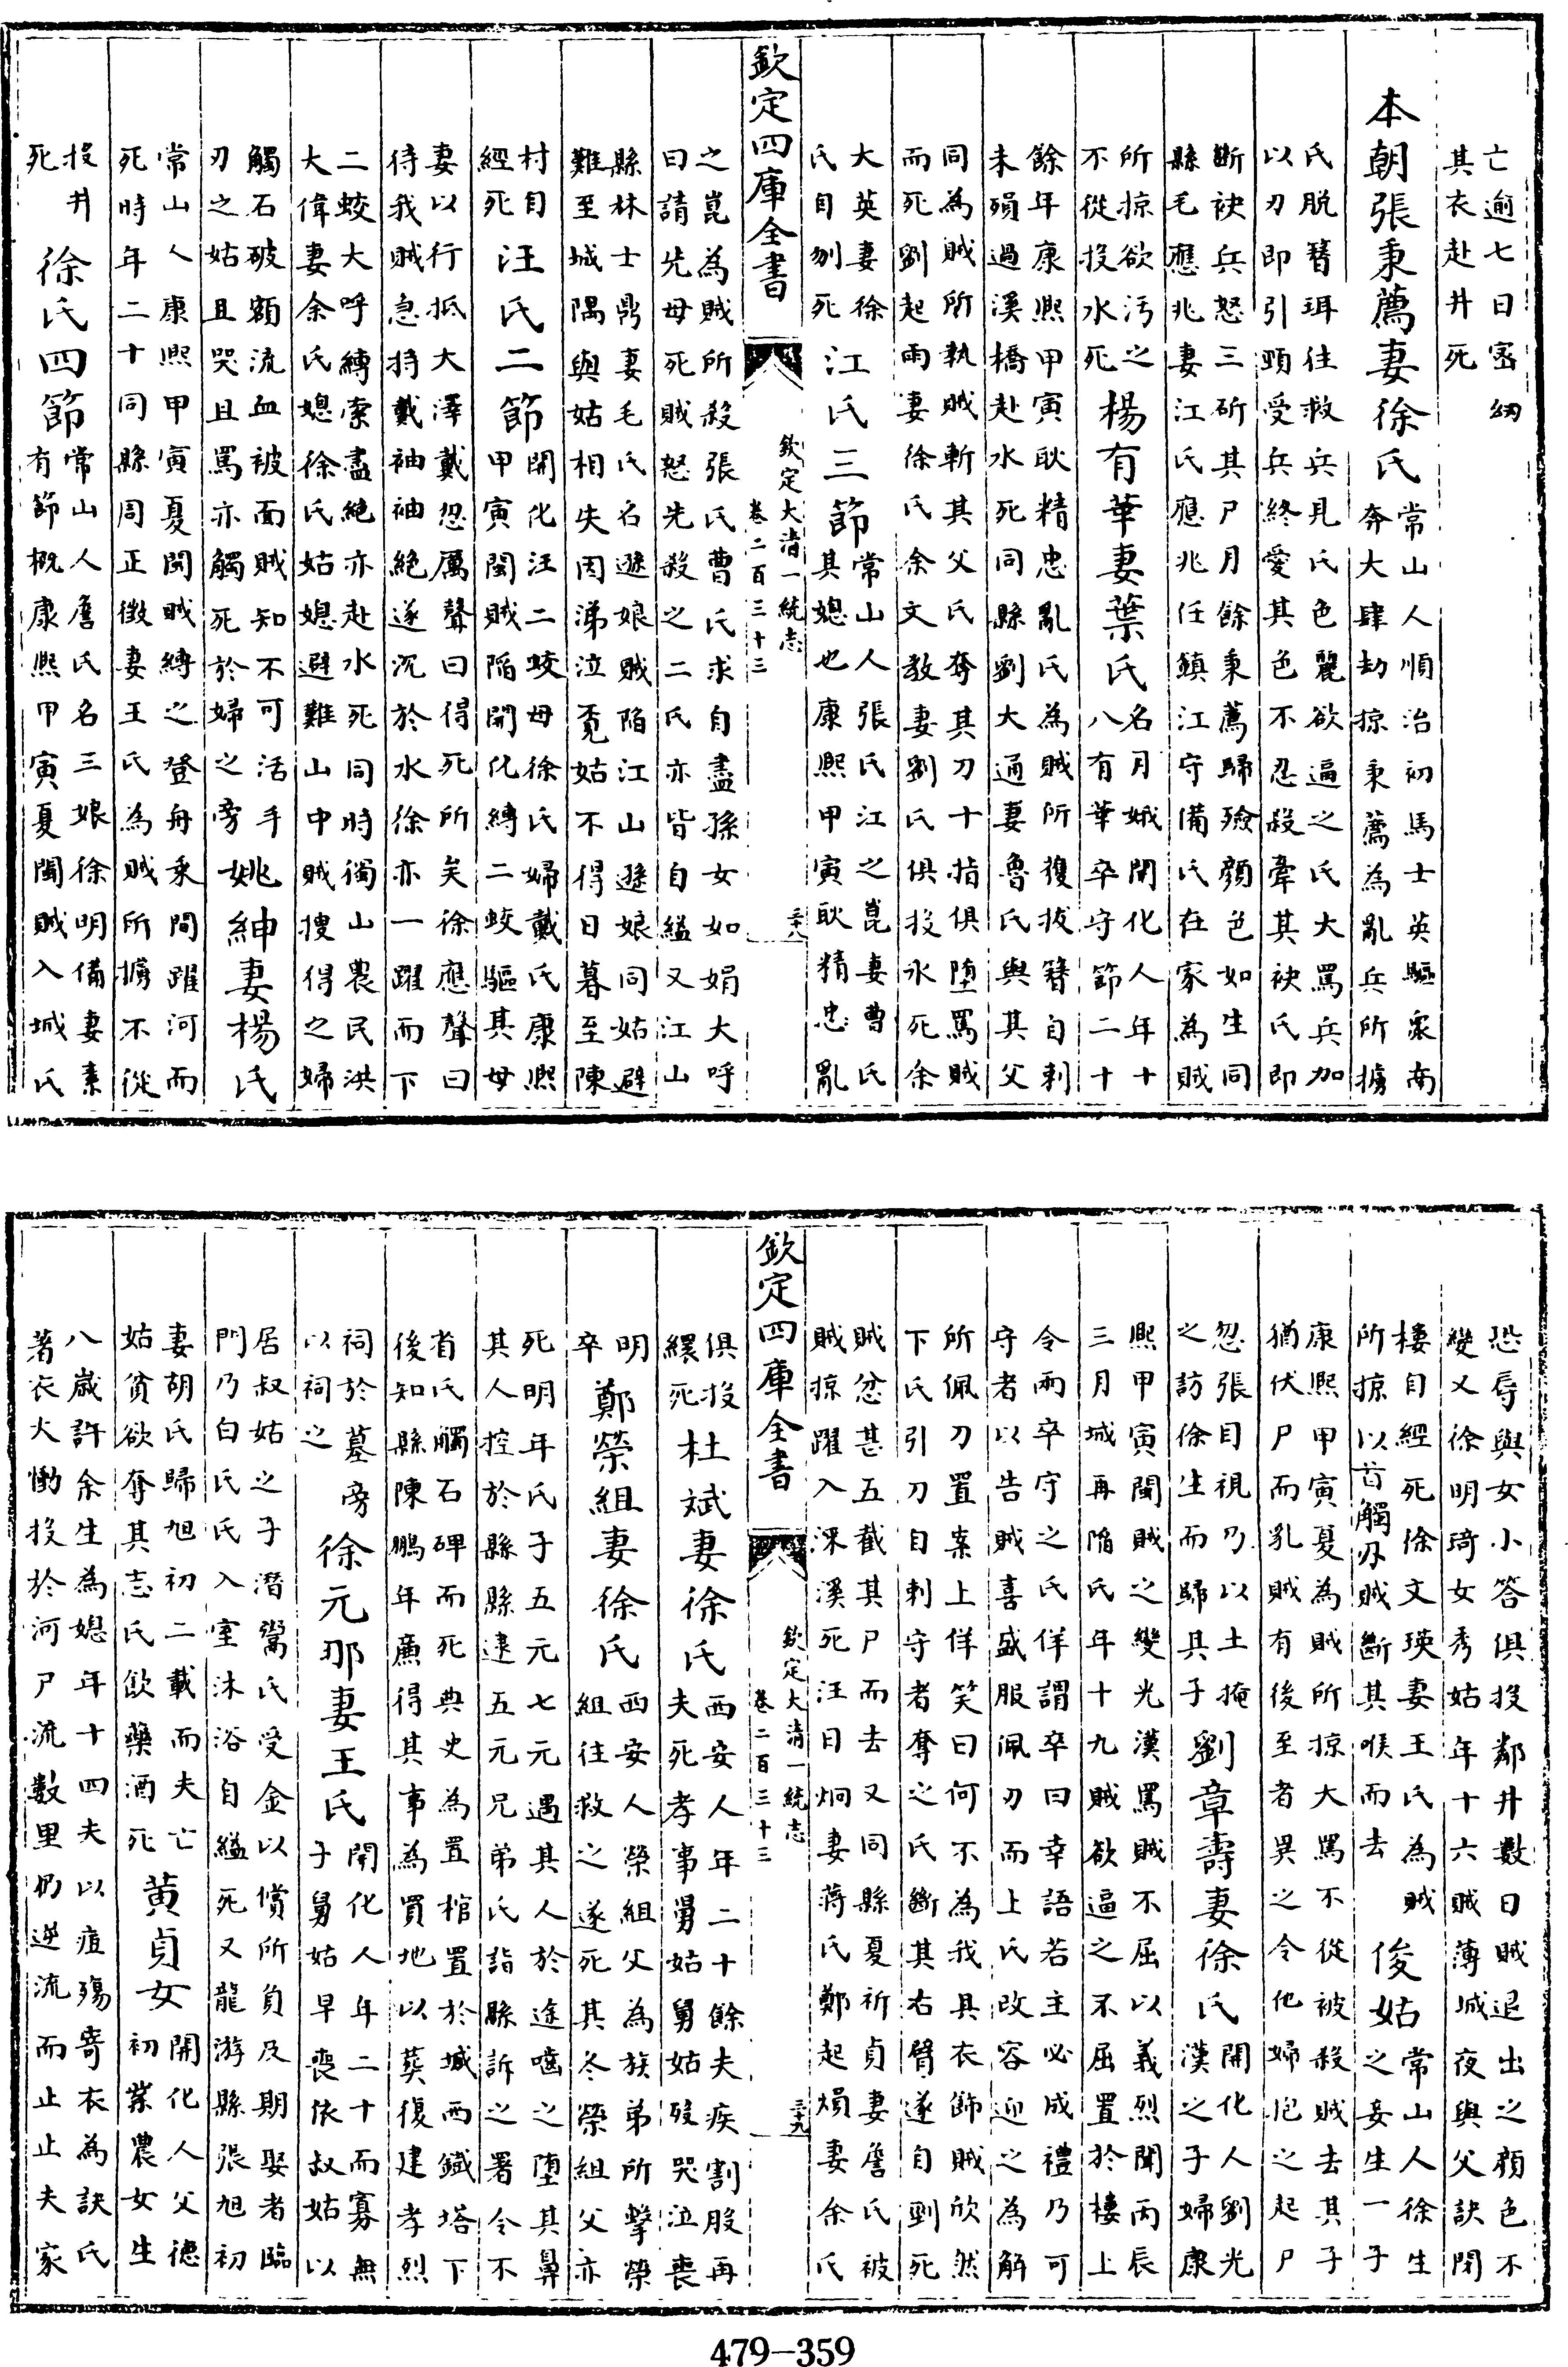 亡逾七日密紉
其衣赴井死
本朝張秉薦妻徐氏
常山人順治初馬士英驅衆南
奔大肆劫掠秉薦為亂兵所擄
氏脱簪珥往救兵見氏色麗欲逼之氏大罵兵加
以刃即引頸受兵終愛其色不忍殺牽其袂氏即
斷袂兵怒三斫其尸月餘秉薦歸殮顔色如生同
縣毛應兆妻江氏應兆任鎮江守備氏在家為賊
所掠欲污之
不從投水死
楊有華妻葉氏
名月娥開化人年十
八有華卒守節二十
餘年康熙甲寅耿精忠亂氏為賊所獲拔簪自刺
未殞過溪橋赴水死同縣劉大通妻魯氏與其父
同為賊所執賊斬其父氏奪其刀十指俱堕罵賊
而死劉起雨妻徐氏余文教妻劉氏俱投水死余
大英妻徐
氏自刎死
江氏三節
常山人張氏江之崑妻曹氏
其媳也康熙甲寅耿精忠亂
欽定四庫全書
欽定大清一統志
卷二百三十三
三十八
之崑為賊所殺張氏曹氏求自盡孫女如娟大呼
曰請先母死賊怒先殺之二氏亦皆自縊又江山
縣林士鼎妻毛氏名遜娘賊陷江山遜娘同姑避
難至城隅與姑相失因涕泣覓姑不得日暮至陳
村自
經死
汪氏二節
開化汪二蛟母徐氏婦戴氏康熙
甲寅閩賊陷開化縛二蛟驅其母
妻以行抵大澤戴忽厲聲曰得死所矣徐應聲曰
待我賊急持戴袖袖絶遂沉於水徐亦一躍而下
二蛟大呼縛索盡絶亦赴水死同時獨山農民洪
大偉妻余氏媳徐氏姑媳避難山中賊搜得之婦
觸石破額流血被面賊知不可活手
刃之姑且哭且罵亦觸死於婦之旁
姚紳妻楊氏
常山人康熙甲寅夏閩賊縛之登舟乘間躍河而
死時年二十同縣周正徵妻王氏為賊所擄不從
投井
死
徐氏四節
常山人詹氏名三娘徐明備妻素
有節概康熙甲寅夏閩賊入城氏
恐辱與女小答俱投鄰井數日賊退出之顔色不
變又徐明琦女秀姑年十六賊薄城夜與父訣閉
樓自經死徐文瑛妻王氏為賊
所掠以首觸刃賊斷其喉而去
俊姑
常山人徐生
之妾生一子
康熙甲寅夏為賊所掠大罵不從被殺賊去其子
猶伏尸而乳賊有後至者異之令他婦抱之起尸
忽張目視乃以土掩
之訪徐生而歸其子
劉章壽妻徐氏
開化人劉光
漢之子婦康
熙甲寅閩賊之變光漢罵賊不屈以義烈聞丙辰
三月城再陷氏年十九賊欲逼之不屈置於樓上
令兩卒守之氏佯謂卒曰幸語若主必成禮乃可
守者以告賊喜盛服佩刃而上氏改容迎之為解
所佩刀置案上佯笑曰何不為我具衣飾賊欣然
下氏引刀自刺守者奪之氏斷其右臂遂自剄死
賊忿甚五截其尸而去又同縣夏祈貞妻詹氏被
賊掠躍入深溪死汪日炯妻蔣氏鄭起熉妻余氏
欽定四庫全書
欽定大清一統志
卷二百三十三
三十九
俱投
繯死
杜斌妻徐氏
西安人年二十餘夫疾割股再
夫死孝事舅姑舅姑歿哭泣喪
明
卒
鄭榮組妻徐氏
西安人榮組父為族弟所擊榮
組往救之遂死其冬榮組父亦
死明年氏子五元七元遇其人於途嚙之堕其鼻
其人控於縣縣逮五元兄弟氏詣縣訴之署令不
省氏觸石碑而死典史為置棺置於城西鐵塔下
後知縣陳鵬年廉得其事為買地以葬復建孝烈
祠於墓旁
以祠之
徐元那妻王氏
開化人年二十而寡無
子舅姑早喪依叔姑以
居叔姑之子潛鬻氏受金以償所負及期娶者臨
門乃白氏氏入室沐浴自縊死又龍游縣張旭初
妻胡氏歸旭初二載而夫亡
姑貧欲奪其志氏飲藥酒死
黄貞女
開化人父德
初業農女生
八歲許余生為媳年十四夫以痘殤寄衣為訣氏
著衣大慟投於河尸流數里仍逆流而止止夫家
479-359